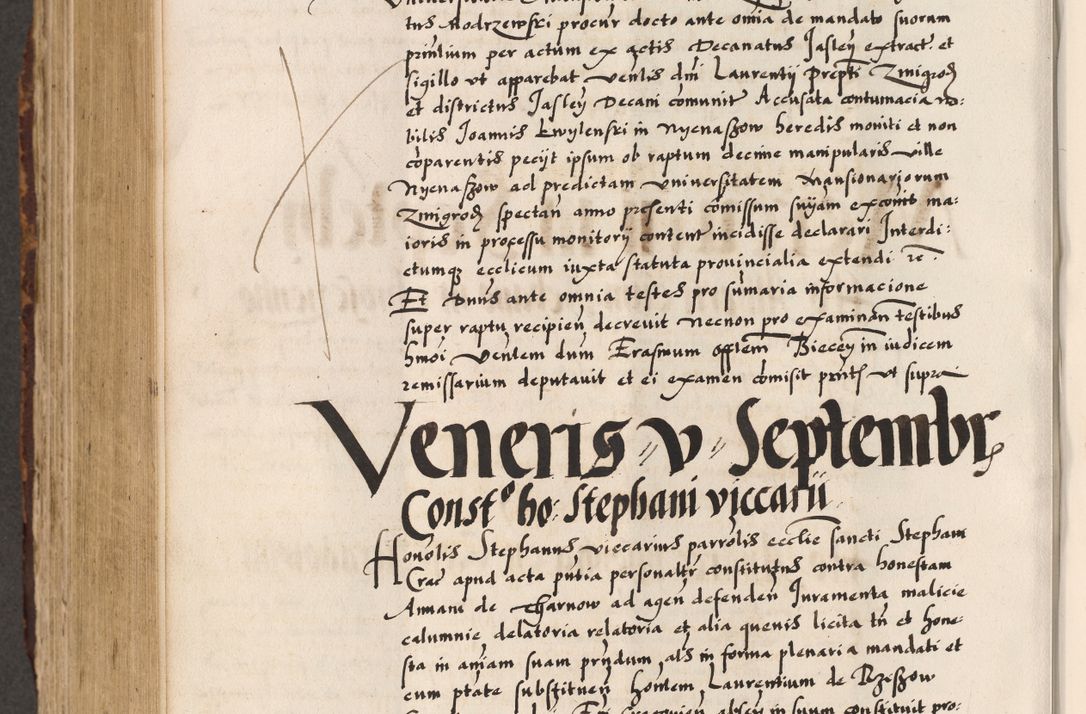 tus Modrzewski procur docto ante omia de mandato suorum
prinlium per actum ex actis Decanatus Jasley extract. et
sigillo ut apparebat venlis dni Laurentij Prepti Zmigrod
et districtus Jasley Decani comunit Accusata contumacia no:
bilis Joannis Kwylenski in Nyenaszow heredis moniti et non
coparentis pecijt ipsum ob raptum decime manipularis ville
Nyenaszow ad predictam universitatem Mansionariorum
Zmigrod spectan anno presenti comissum snyam excomb ma:
ioris in processu monitorij content incidisse declarari Interdi:
ctumq ecclicum iuxta statuta provincialia extendi re.
Et Dnus ante omnia testes pro sumaria informacione
super raptu recipien decrevit necnon pro examinan testibus
hmoi Venlem dum Erasmum offlem Biecey in iudicem
remissarium deputavit et ei examen comisit pntf ut supra
Veneris v Septembr
Const° ho: Stephani viccarii
Honolis Stephanus viccarius parrolis ecclie sancti Stephani
Crac apud acta pntia personaltr constitutus contra honestam
Annam de Tharnow ad agen defenden Juramenta malicie
calumnie delatoria relatoria et alia quevis licita tn et hone
sta in aniam suam prndum als in forma plenaria mandati et
cum ptate substituen honlem Laurentium de Rzeszow